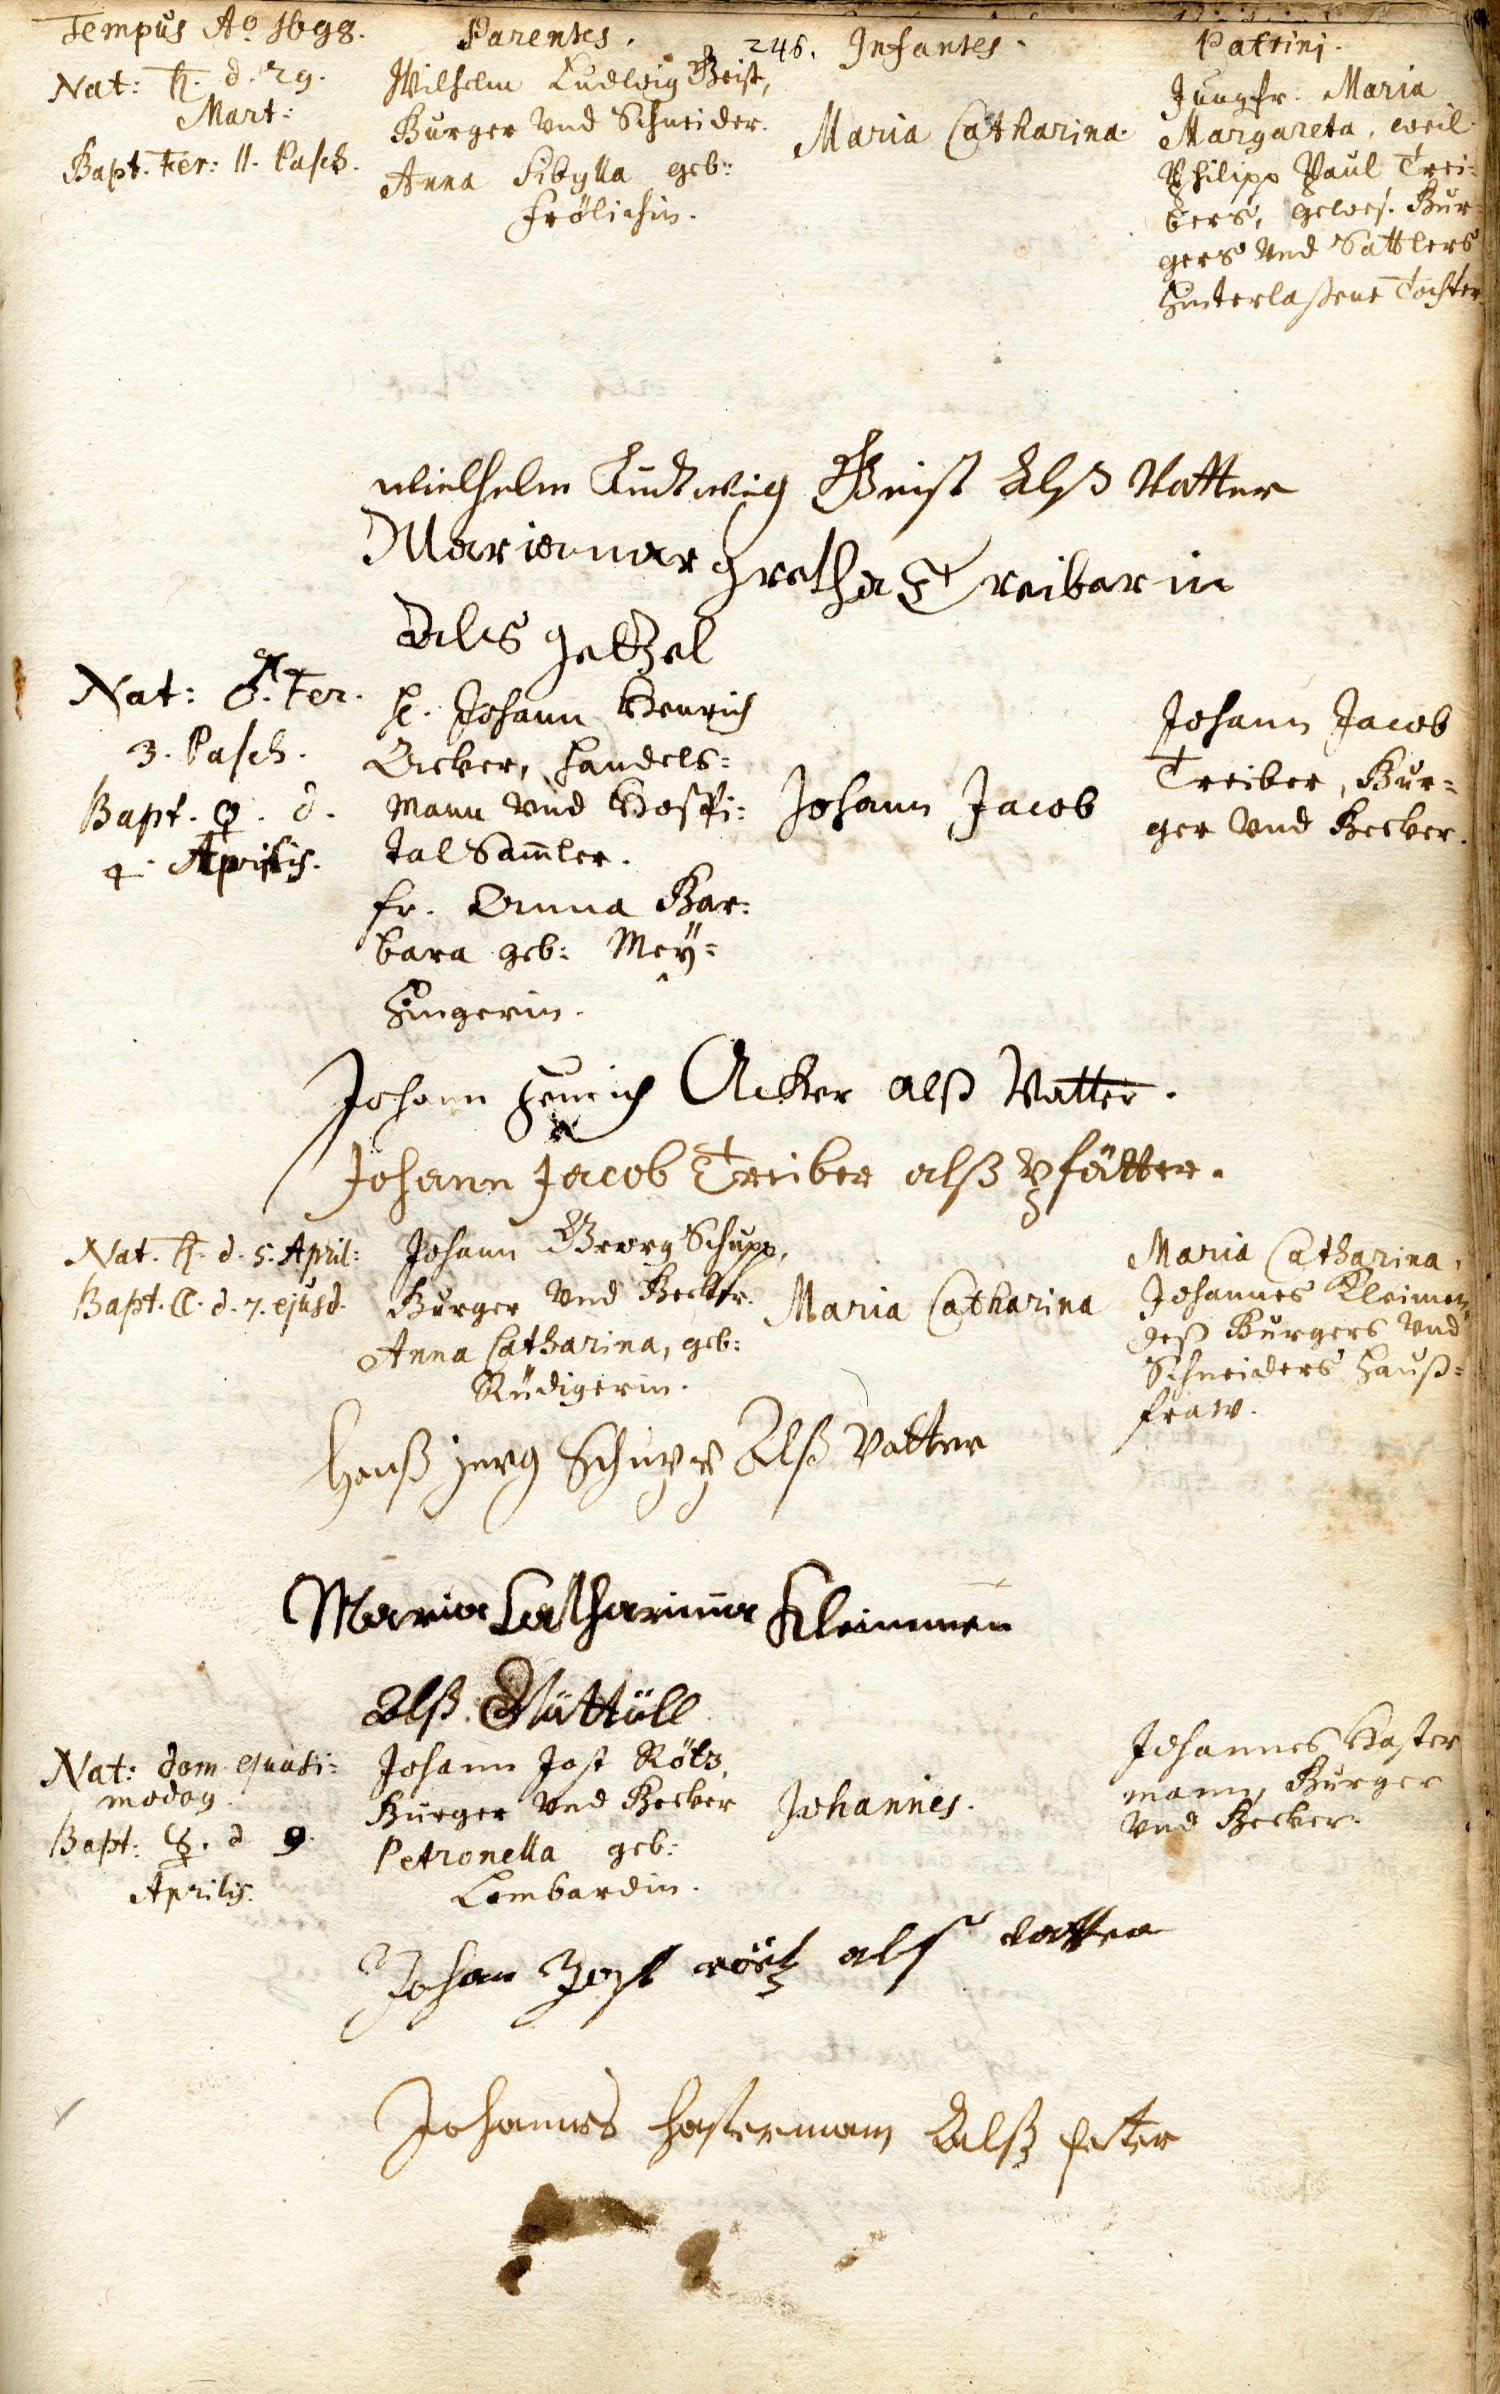 Tempus Aº 1698.
Parentes.
246.
Infantes.
Patrini.
Nat: ♄. d. 29.
Mart:
Bapt. Fer: II. Pasch.
Wilhelm Ludwig Geist,
Burger Vnd Schneider.
Anna Sibylla geb:
Frölichin.
Maria Catharina.
Jungfr. Maria
Margareta, weil.
Philipp Paul Trei-
bers, gewes. Bur-
gers Vnd Sattlers
hinterlaßene Tochter.
Wielhelm Ludtwig Geist Alß Vatter
Maria mar gretha Treibar in
Als gettel
Nat: ♂. Fer.
3. Pasch.
Bapt. ♀. d.
4. Aprilis.
H. Johann Henrich
Acker, Handels-
mann Vnd Hospi-
tal Sam̄ler.
Fr. Anna Bar-
bara geb: Meÿ-
hingerin.
Johann Jacob
Johann Jacob
Treiber, Bur-
ger Vnd Becker.
Johann Henrich Acker alß Vatter.
Johann Jacob Treiber alß Pfätter.
Nat. ♄. d. 5. April:
Bapt. ☾. d. 7. ejusd.
Johann Georg Schupp,
Burger Vnd Becker.
Anna Catharina, geb:
Rüdigerin.
Maria Catharina
Maria Catharina,
Johannes Kleimen,
deß Burgers Vnd
Schneiders Hauß-
fraw.
Hanß jerg Schupp Alß Vatter
Maria Catharinna Kleimmen
Alß
Nat: dom quasi-
modog.
Bapt: ☿. d. 9.
Aprilis.
Johann Jost Rötz,
Burger Vnd Becker
Petronella geb:
Lombardin.
Johannes.
Johannes Haster
mann, Burger
Vnd Becker.
Johan Jost rötz als vatter
Johannes Hastermann Alß petter